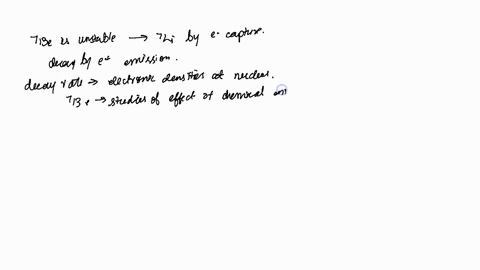 7Be is unstable → 7Li by e- capture.
decay by e+ emission.
decay rate → electronic densities at nucleus.
7Be → studies of effect of chemical